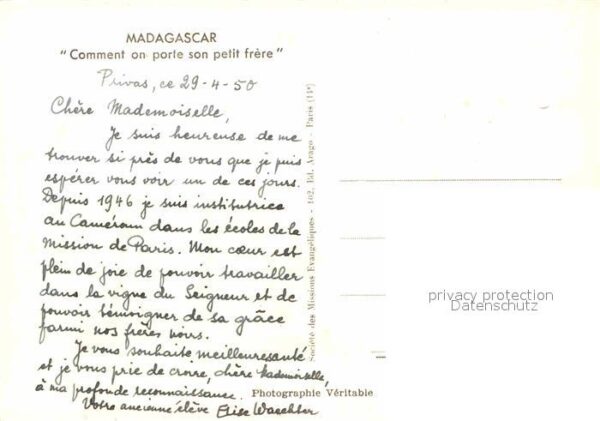 MADAGASCAR
"Comment on porte son petit frère"
Privas, ce 29-4-50
Chère Mademoiselle,
Je suis heureuse de me
trouver si près de vous que je puis
espérer vous voir un de ces jours.
Depuis 1946 je suis institutrice
au Cameroun dans les écoles de la
Mission de Paris. Mon cœur est
plein de joie de pouvoir travailler
dans la vigne du Seigneur et de
pouvoir témoigner de sa grâce
parmi nos frères noirs.
Je vous souhaite meilleure santé
et je vous prie de croire, chère Mademoiselle,
à ma profonde reconnaissance.
Votre ancienne élève Elise Waechter
Photographie Véritable
Société des Missions Evangéliques - 102, Bd. Arago - Paris (14e)
privacy protection
Datenschutz